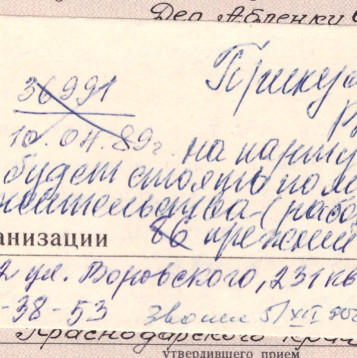 Дер. Абленки
36991
Прикре
10.04.89г. на карту
будет стоять по м
жительства (рабо
анизации 86 прежний
2 ул. Воровского, 231 кв
-38-53 Звонил 5/XII
Краснодарского края
утвердившего прием